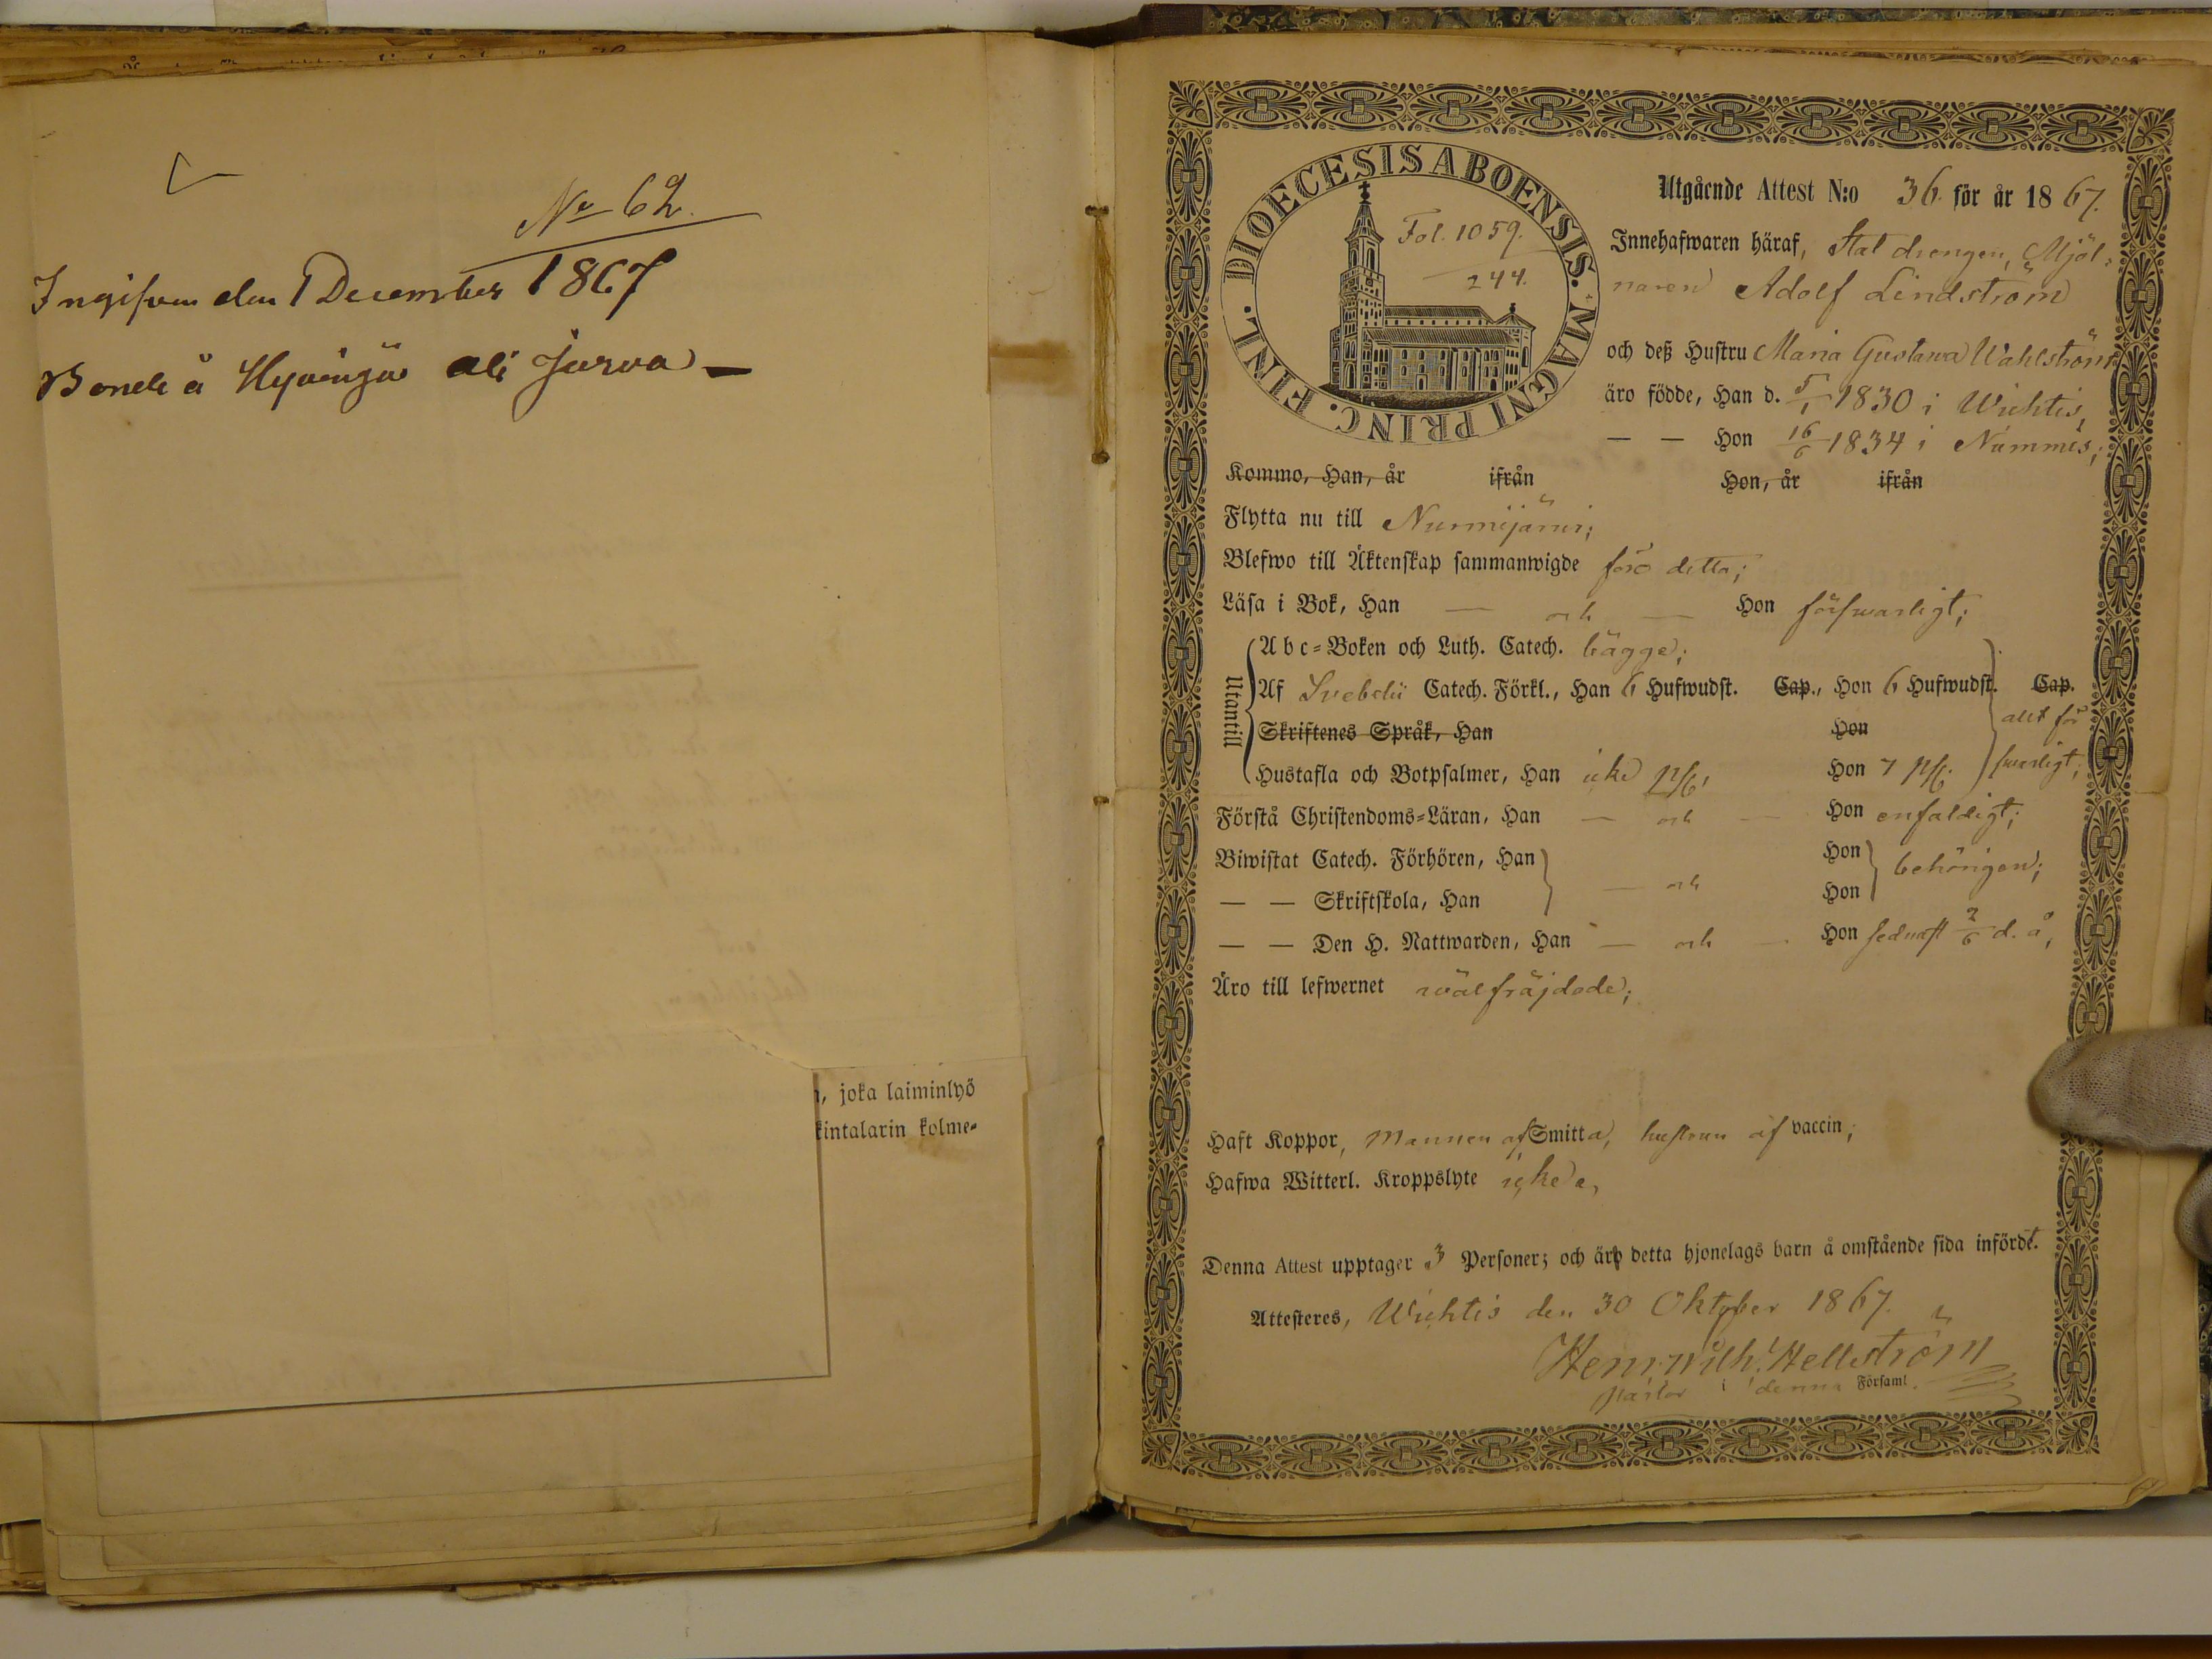 No 62.
Ingifven den 1 December 1867
Bonde å Hyvingä ali Jarva
, joka laiminlyö
kintalarin kolme-
DIOECESIS ABOENSIS. MAGNI PRINC. FINL.
Fol. 1059.
244.
Utgående Attest N:o 36. för år 1867.
Innehafwaren häraf, Stat drengen, Mjöl-
naren Adolf Lindström
och deß Hustru Maria Gustava Wahlström
äro födde, Han d. 5/1 1830 i Wichtis,
— — Hon 16/6 1834 i Nummis;
Kommo, Han, år ifrån Hon, år ifrån
Flytta nu till Nurmijärvi;
Blefwo till Äktenskap sammanwigde före detta;
Läsa i Bok, Han — och — Hon försvarligt;
Utantill
Abc-Boken och Luth. Catech. bägge;
Af Svebelii Catech. Förkl., Han 6 Hufwudst. Cap., Hon 6 Hufwudst. Cap.
Skriftenes Språk, Han Hon allt för
Hustafla och Botpsalmer, Han icke ps; Hon 7 ps; svarligt;
Förstå Christendoms-Läran, Han — och — Hon enfaldigt;
Biwistat Catech. Förhören, Han Hon
— och behörigen;
— — Skriftskola, Han Hon
— — Den H. Nattwarden, Han — och — Hon sednast 2/6 d. å,
Äro till lefwernet wälfräjdade;
Haft Koppor, Mannen af Smitta, hustrun af vaccin;
Hafwa Witterl. Kroppslyte icke a,
Denna Attest upptager 3 Personer; och äro detta hjonelags barn å omstående sida infördt.
Attesteres, Wichtis den 30 Oktober 1867.
Henr. Wilh. Hellström
Pastor i denna Församl.